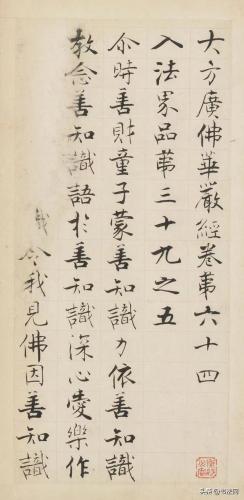 大方廣佛華嚴經卷苐六十四
入法界品苐三十九之五
尒時善財童子蒙善知識力依善知識
教念善知識語於善知識深心愛樂作
識令我見佛因善知識